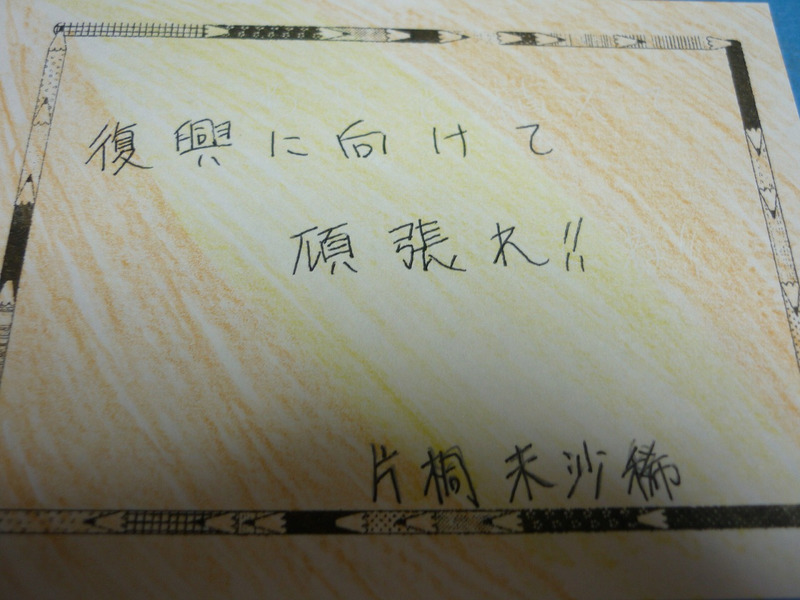 復興に向けて
頑張れ!!
片桐未沙稀